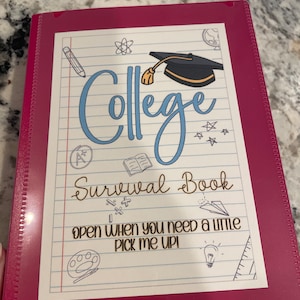 College
Survival Book
OPEN WHEN YOU NEED A LITTLE
PICK ME UP!